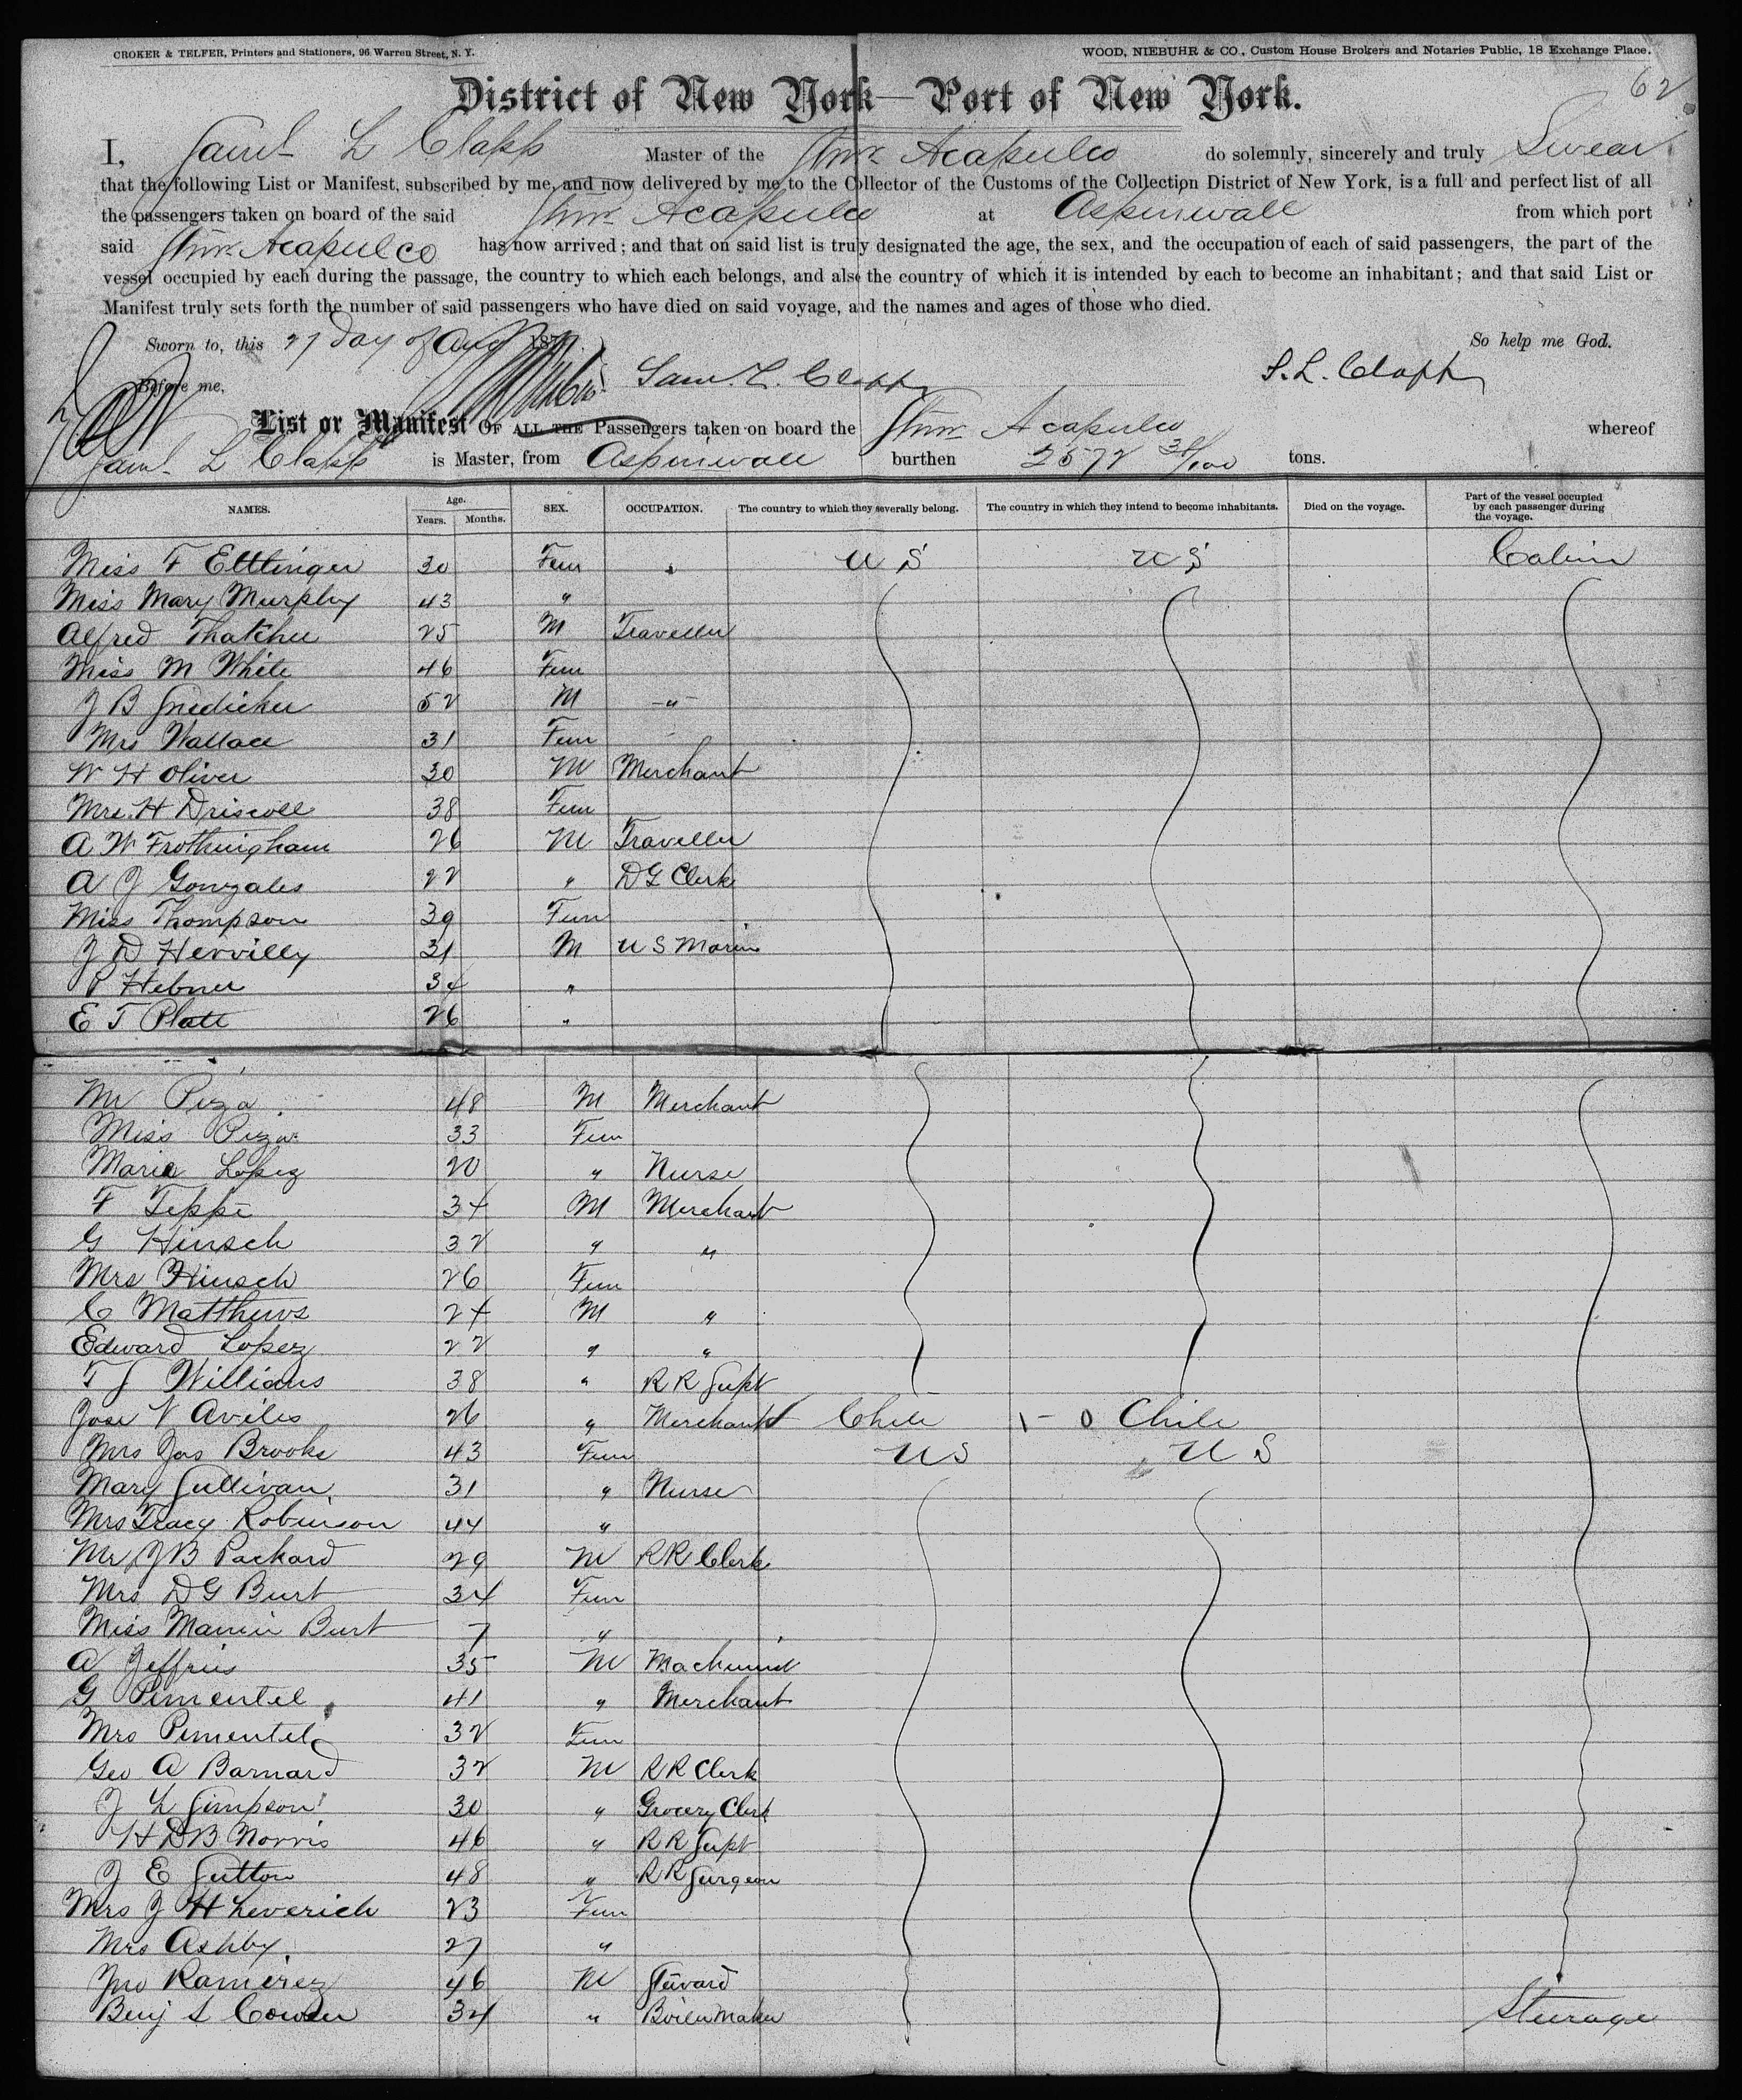 CROKER & TELFER, Printers and Stationers, 96 Warren Street, N. Y. WOOD, NIEBUHR & CO., Custom House Brokers and Notaries Public, 18 Exchange Place.
62
District of New York—Port of New York.
I, Saml L Clapp Master of the Stmr Acapulco do solemnly, sincerely and truly Swear
that the following List or Manifest, subscribed by me, and now delivered by me to the Collector of the Customs of the Collection District of New York, is a full and perfect list of all
the passengers taken on board of the said Stmr Acapulco at Aspinwall from which port
said Stmr Acapulco has now arrived; and that on said list is truly designated the age, the sex, and the occupation of each of said passengers, the part of the
vessel occupied by each during the passage, the country to which each belongs, and also the country of which it is intended by each to become an inhabitant; and that said List or
Manifest truly sets forth the number of said passengers who have died on said voyage, and the names and ages of those who died.
Sworn to, this 27 Day of Aug 187 So help me God.
Before me, Sam. L. Clapp S. L. Clapp
List or Manifest OF ALL THE Passengers taken on board the Stmr Acapulco whereof
Saml L Clapp is Master, from Aspinwall burthen 2572 38/100 tons.
NAMES. Age. Years. Months. SEX. OCCUPATION. The country to which they severally belong. The country in which they intend to become inhabitants. Died on the voyage. Part of the vessel occupied by each passenger during the voyage.
Miss F Ettlinger 30 Fem " U S U S Cabin
Miss Mary Murphy 43 "
Alfred Thatcher 25 M Traveller
Miss M White 46 Fem
J B Snedicker 52 M -"-
Mrs Wallace 31 Fem
W H Oliver 30 M Merchant
Mrs. H Driscoll 38 Fem
A W Frothingham 26 M Traveller
A J Gonzales 22 " D G Clerk
Miss Thompson 39 Fem
J D Hervilly 31 M U S Marine
P Hebner 34 "
E T Platt 26 "
Mr Piza 48 M Merchant
Miss Piza 33 Fem
Maria Lopez 20 " Nurse
F Teppe 34 M Merchant
G Hinsch 32 " "
Mrs Hinsch 26 Fem
C Matthews 24 M "
Edward Lopez 22 " "
T J Williams 38 " R R Supt
Jose V Aviles 26 " Merchant Chile Chile
Mrs Jas Brooks 43 Fem U S U S
Mary Sullivan 31 " Nurse
Mrs Tracy Robinson 44 "
Mr J B Packard 29 M R R Clerk
Mrs D G Burt 34 Fem
Miss Mamie Burt 7 "
A Jeffries 35 M Machinist
G Pimentel 41 " Merchant
Mrs Pimentel 32 Fem
Geo A Barnard 32 M R R Clerk
J L Simpson 30 " Grocery Clerk
H D B Norris 46 " R R Supt
J E Sutton 48 " R R Surgeon
Mrs J H Leverich 23 Fem
Mrs Ashby 27 "
Jno Ramirez 46 M Steward
Benj S Cowden 34 " Boiler Maker Steerage